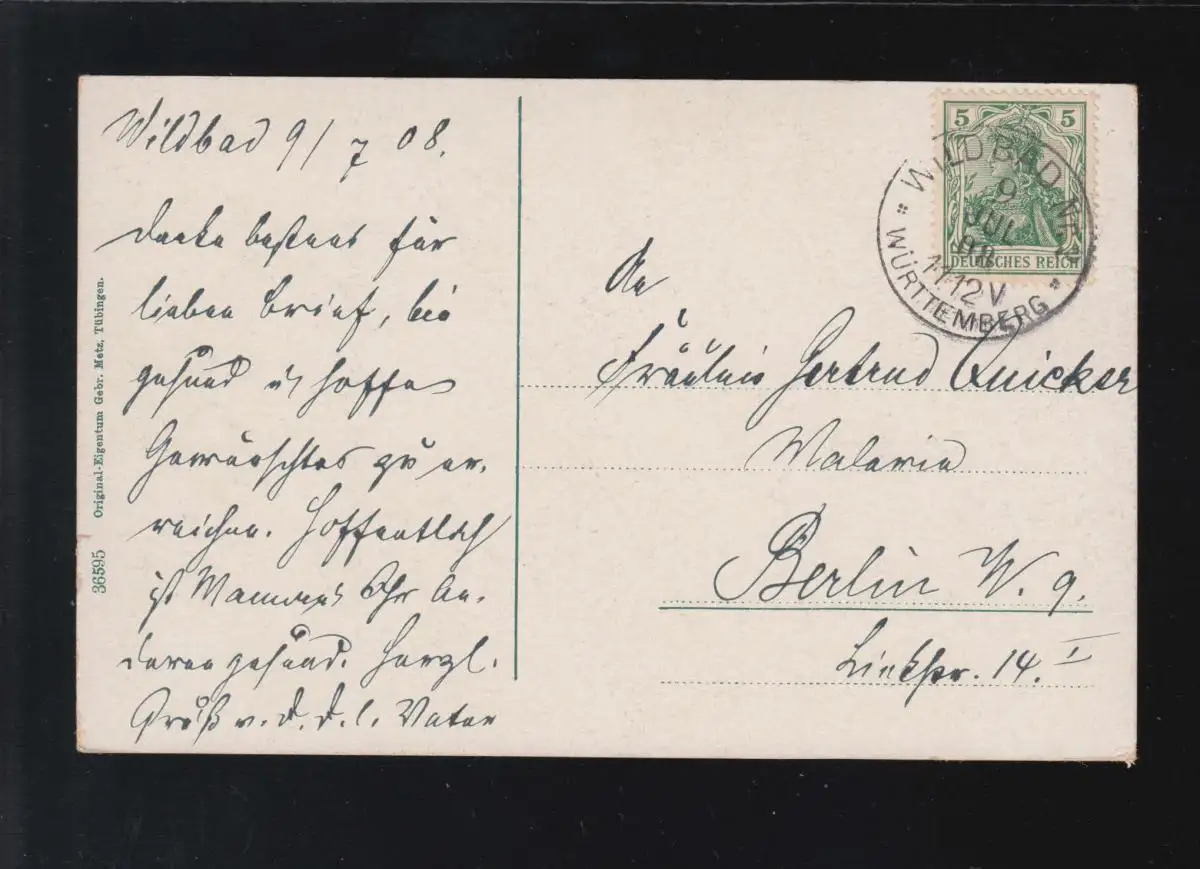 Wildbad 9/7 08.
Danke bestens für
lieben Brief, bin
gesund u. hoffe
Gewünschtes zu er-
reichen. Hoffentlich
ist Mama u. Ihr An-
deren gesund. Herzl.
Gruß v. D. D. l. Vater
Original-Eigentum Gebr. Metz, Tübingen.
36595
5 5
DEUTSCHES REICH
WILDBAD
9
JUL
08
11-12 V
WÜRTTEMBERG
An
Fräulein Gertrud Quicker
Malerin
Berlin W. 9.
Linkstr. 14 I